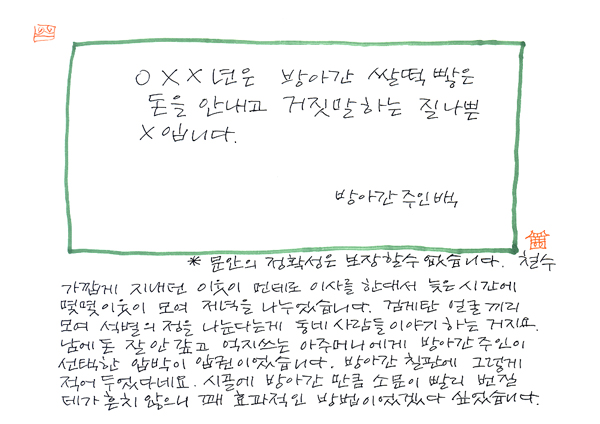 O X X 년은 방아간 쌀떡 빻은
돈을 안내고 거짓말하는 질나쁜
X 입니다.
방아간 주인 백
* 문안의 정확성은 보장할수 없습니다. 철수
가깝게 지내던 이웃이 먼데로 이사를 한대서 늦은 시간에
몇몇이웃이 모여 저녁을 나누었습니다. 검게탄 얼굴끼리
모여 석별의 정을 나눈다는게 동네 사람들 이야기 하는 거지요.
남에 돈 잘 안 갚고 억지쓰는 아주머니에게 방아간 주인이
선택한 압박이 압권이었습니다. 방아간 칠판에 그렇게
적어 두었다네요. 시골에 방아간 만큼 소문이 빨리 번질
데가 흔치 않으니 꽤 효과적인 방법이었겠다 싶었습니다.